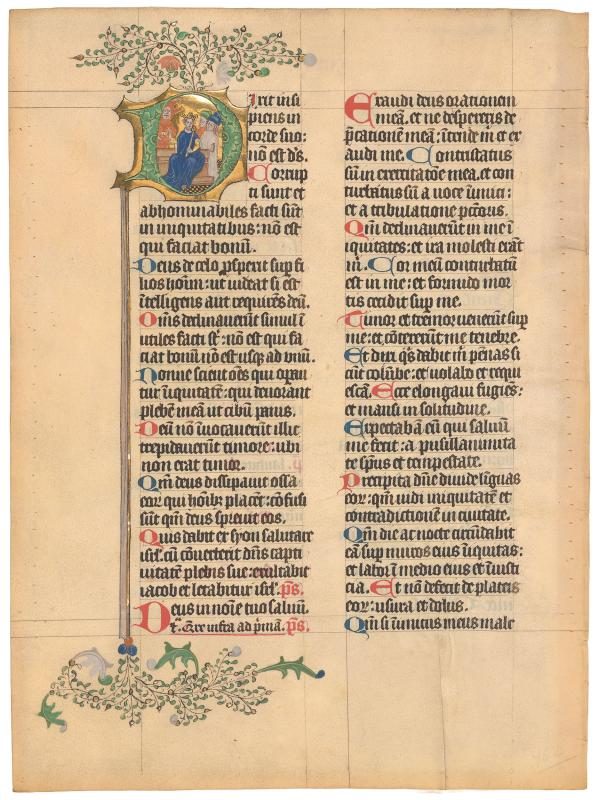 Dixit insi
piens in
corde suo:
nō est dˢ.
Corrup
ti sunt et
abhominabiles facti sūt
in iniquitatibus: nō est
qui faciat bonū.
Deus de celo ꝓsperit suꝑ fi
lios hoīm: ut videat si est
ītelligens aut requirēs deū.
Om̄s declinaverūt simul ī
utiles facti sr̄: nō est qui fa
ciat bonū nō est usqꝫ ad unū.
Nonne scient oēs qui oꝑan
tur īiquitatē: qui devorant
plebē meā ut cibū panis.
Deū nō īvocaverūt illic
trepidaverūt timore: ubi
non erat timor.
Qm̄ deus dissipavit ossa
eoꝝ qui hōībꝫ placēt: cōfusi
sūt qm̄ deus sprevit eos.
Quis dabit ex syon salutare
isrl̄: cū cōverterit dn̄s capti
vitatē plebis sue: exultabit
iacob et letabitur isrl̄. p̄s.
Deus in noīe tuo salvū.
Exaudi deus orationem
meā, et ne despexeris de
p̄cationē meā: ītende m̄ et ex
audi me. Contristatus
sū in exercitatōe mea, et con
turbatus sū a voce īimici:
et a tribulatione pctōris.
Qm̄ declinaverūt in me ī
iquitates: et ira molesti erāt
m̄. Cor meū conturbatū
est in me: et formido mor
tis cecidit suꝑ me.
Timor et tremor venerūt suꝑ
me: et cōtexerūt me tenebre.
Et dixi qˢ dabit m̄ pēnas si
cut colūbe: et volabo et requi
escā. Ecce elongavi fugiēs:
et mansi in solitudine.
Expectabā eū qui salvū
me fecit: a pusillanimita
te sp̄us et tempestate.
Precipita dn̄e divide līguas
eoꝝ: qm̄ vidi iniquitatē et
contradictionē in civitate.
Qm̄ die ac nocte circūdabit
eā suꝑ muros eius īiquitas:
et labor ī medio eius et īiusti
cia. Et nō defecit de plateis
eoꝝ: usura et dolus.
Qm̄ si īimicus meus male